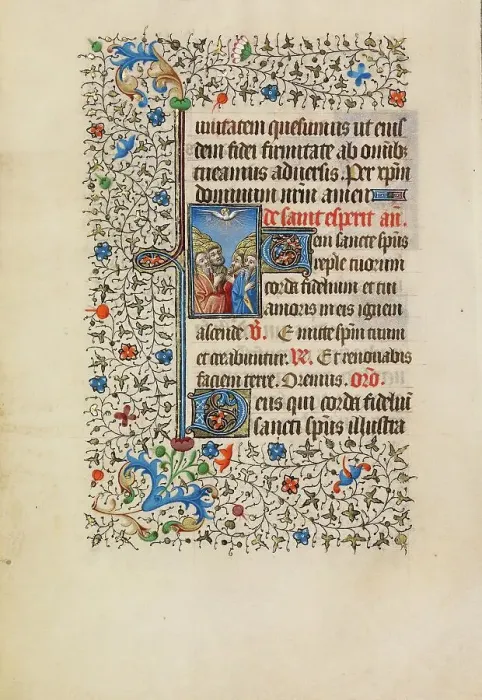 unitatem quesumus ut eius
dem fidei firmitate ab omĩbȝ
tueamur aduersis. Per xp̃m
dominum nr̃m amen
de saint esperit añ.
Ueni sancte sp̃us
reple tuorum
corda fidelium et tui
amoris in eis ignem
ascende. V̈. Emitte sp̃m tuum
et creabuntur. R̃. Et renouabis
faciem terre. Oremus. oro̅.
Deus qui corda fideliũ
sancti sp̃us illustra